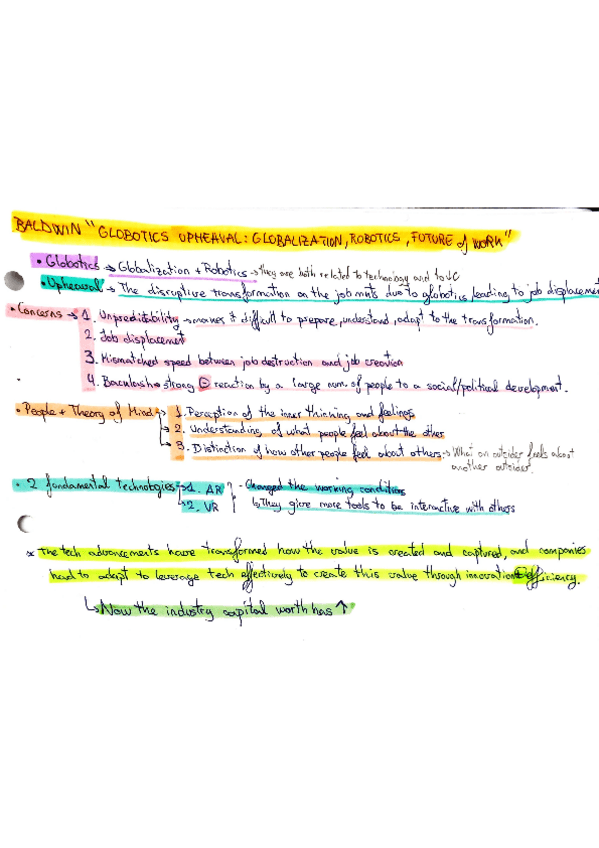 BALDWIN "GLOBOTICS UPHEAVAL: GLOBALIZATION, ROBOTICS, FUTURE of WORK"
• Globotics → Globalization + Robotics → they are both related to technology and to
• Upheaval → The disruptive transformation on the job mkts due to globotics, leading to job displacement
• Concerns → 1. Unpreditability → makes it difficult to prepare, understand, adapt to the transformation.
2. Job displacement
3. Mismatched speed between job destruction and job creation
4. Backlash → strong ⊖ reaction by a large num. of people to a social/political development.
• People + Theory of Mind → 1. Perception of the inner thinking and feelings
2. Understanding of what people feel about the other
3. Distinction of how other people feel about others → What an outsider feels about
another outsider.
• 2 fundamental technologies → 1. AR } - Changed the working conditions
→ 2. VR ↳ They give more tools to be interactive with others
* The tech advancements have transformed how the value is created and captured, and companies
had to adapt to leverage tech effectively to create this value through innovation + efficiency.
↳ Now the industry capital worth has ↑